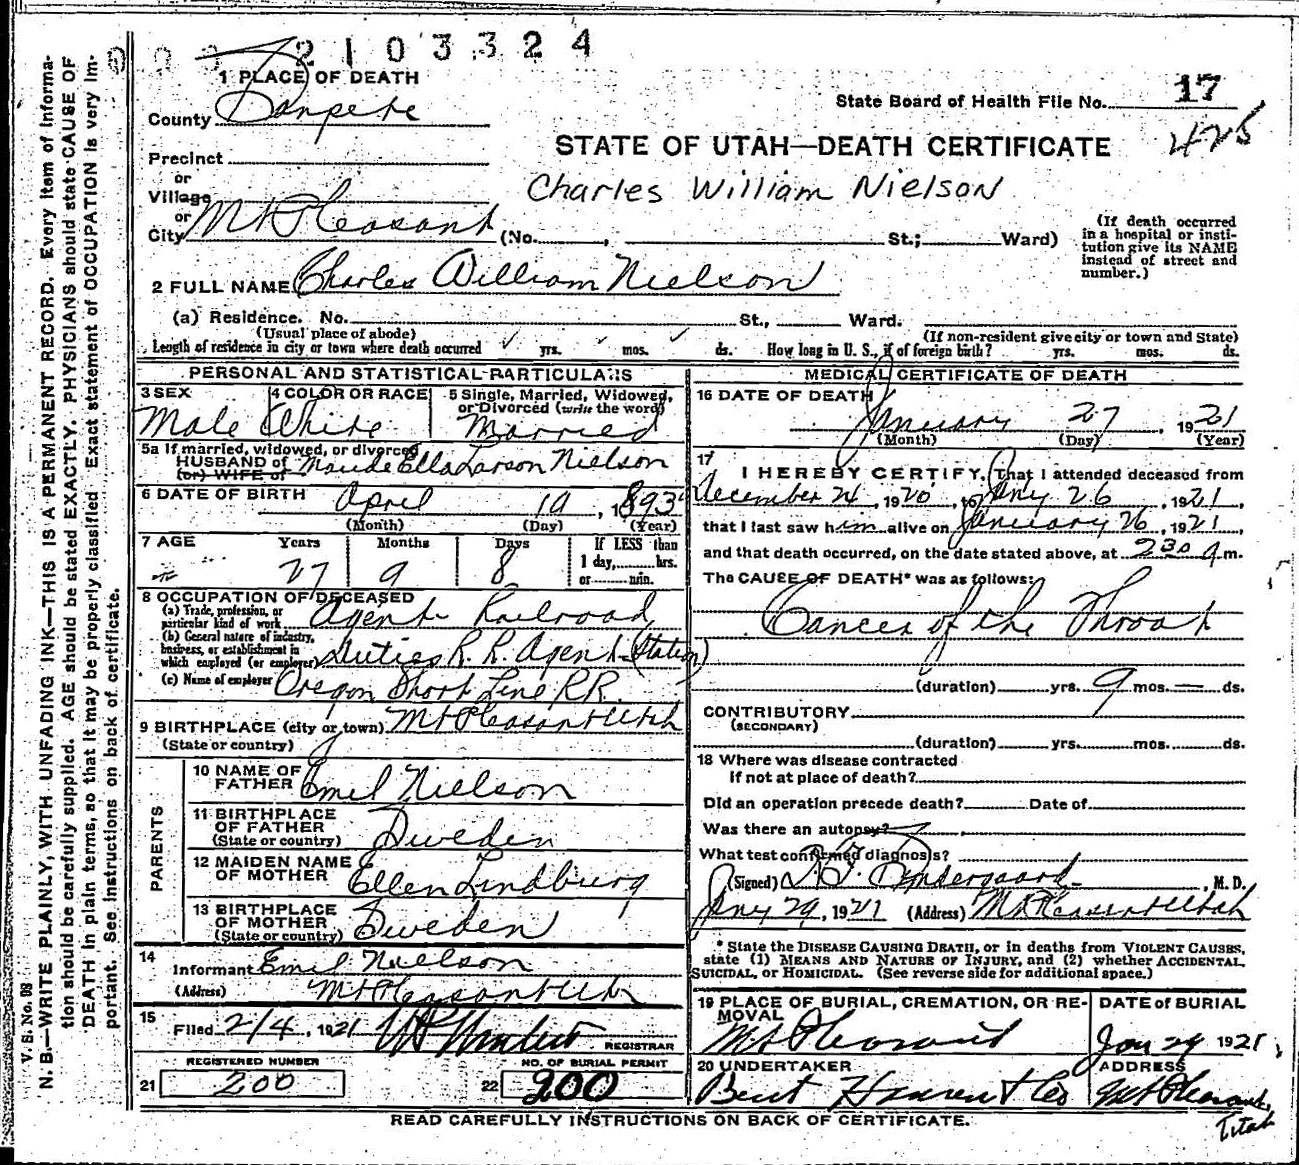 2103324
1 PLACE OF DEATH
State Board of Health File No. 17
County Sanpete
425
STATE OF UTAH—DEATH CERTIFICATE
Precinct
Charles William Nielson
or
Village
or
City Mt Pleasant (No. , St.; Ward)
(If death occurred in a hospital or institution give its NAME instead of street and number.)
2 FULL NAME Charles William Nielson
(a) Residence. No. St., Ward.
(Usual place of abode) (If non-resident give city or town and State)
Length of residence in city or town where death occurred yrs. mos. ds. How long in U. S., if of foreign birth? yrs. mos. ds.
PERSONAL AND STATISTICAL PARTICULARS
3 SEX 4 COLOR OR RACE 5 Single, Married, Widowed, or Divorced (write the word)
Male White Married
5a If married, widowed, or divorced
HUSBAND of Maude Ella Larson Nielson
(or) WIFE of
6 DATE OF BIRTH April 19, 1893
(Month) (Day) (Year)
7 AGE Years Months Days If LESS than
1 day, hrs.
27 9 8 or min.
8 OCCUPATION OF DECEASED
(a) Trade, profession, or
particular kind of work Agent Railroad
(b) General nature of industry,
business, or establishment in
which employed (or employer) Duties R. R. Agent (Station)
(c) Name of employer Oregon Short Line R.R.
9 BIRTHPLACE (city or town) Mt Pleasant Utah
(State or country)
PARENTS
10 NAME OF
FATHER Emil Nielson
11 BIRTHPLACE
OF FATHER
(State or country) Sweden
12 MAIDEN NAME
OF MOTHER Ellen Lindburg
13 BIRTHPLACE
OF MOTHER
(State or country) Sweden
14
Informant Emil Nielson
(Address) Mt Pleasant Utah
15
Filed 2/4, 1921 REGISTRAR
REGISTERED NUMBER NO. OF BURIAL PERMIT
21 200 22 200
MEDICAL CERTIFICATE OF DEATH
16 DATE OF DEATH
January 27, 1921
(Month) (Day) (Year)
17
I HEREBY CERTIFY, That I attended deceased from
December 24, 1920, to Jany 26, 1921,
that I last saw him alive on January 26, 1921,
and that death occurred, on the date stated above, at 2 30 a m.
The CAUSE OF DEATH* was as follows:
Cancer of the Throat
(duration) yrs. 9 mos. — ds.
CONTRIBUTORY
(SECONDARY)
(duration) yrs. mos. ds.
18 Where was disease contracted
If not at place of death?
Did an operation precede death? Date of
Was there an autopsy?
What test confirmed diagnosis?
(Signed) , M. D.
Jany 29, 1921 (Address) Mt Pleasant Utah
* State the DISEASE CAUSING DEATH, or in deaths from VIOLENT CAUSES,
state (1) MEANS AND NATURE OF INJURY, and (2) whether ACCIDENTAL,
SUICIDAL, or HOMICIDAL. (See reverse side for additional space.)
19 PLACE OF BURIAL, CREMATION, OR RE- DATE of BURIAL
MOVAL
Mt Pleasant Jan 29 1921
20 UNDERTAKER ADDRESS
Bent Hansen & Co Mt Pleasant,
Utah
READ CAREFULLY INSTRUCTIONS ON BACK OF CERTIFICATE.
V. S. No. 98
N. B.—WRITE PLAINLY, WITH UNFADING INK—THIS IS A PERMANENT RECORD. Every item of informa-
tion should be carefully supplied. AGE should be stated EXACTLY. PHYSICIANS should state CAUSE OF
DEATH in plain terms, so that it may be properly classified. Exact statement of OCCUPATION is very im-
portant. See instructions on back of certificate.